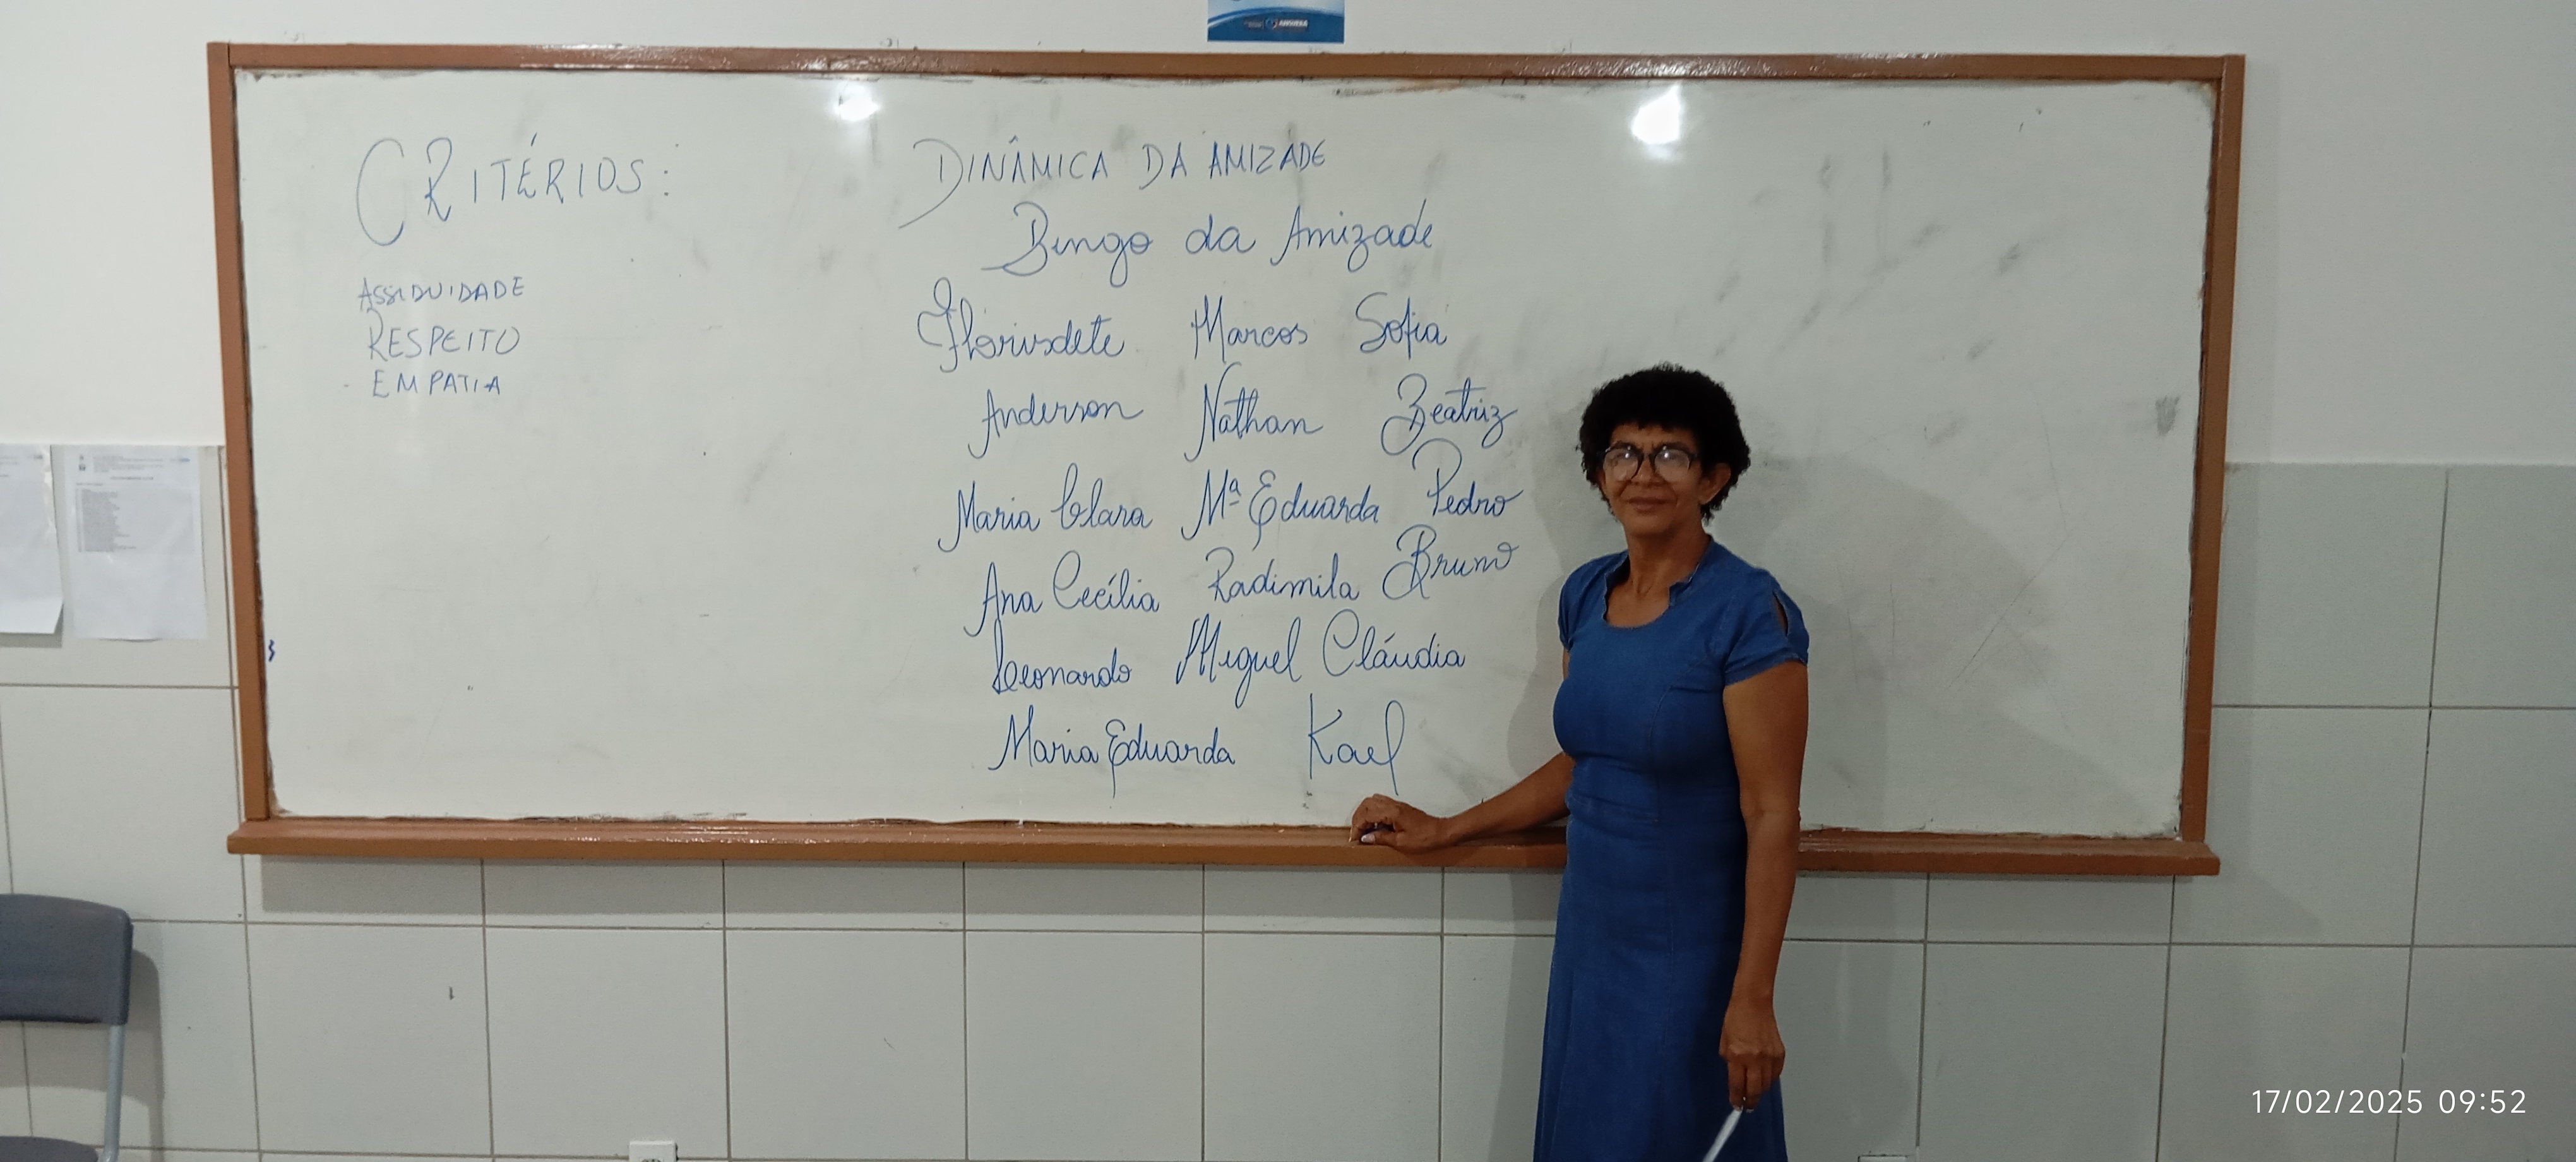 CRITÉRIOS:
ASSIDUIDADE
RESPEITO
EMPATIA
DINÂMICA DA AMIZADE
Bingo da Amizade
Florisdete Marcos Sofia
Anderson Nathan Beatriz
Maria Clara Mª Eduarda Pedro
Ana Cecília Radimila Bruno
Leonardo Miguel Cláudia
Maria Eduarda Kael
17/02/2025 09:52